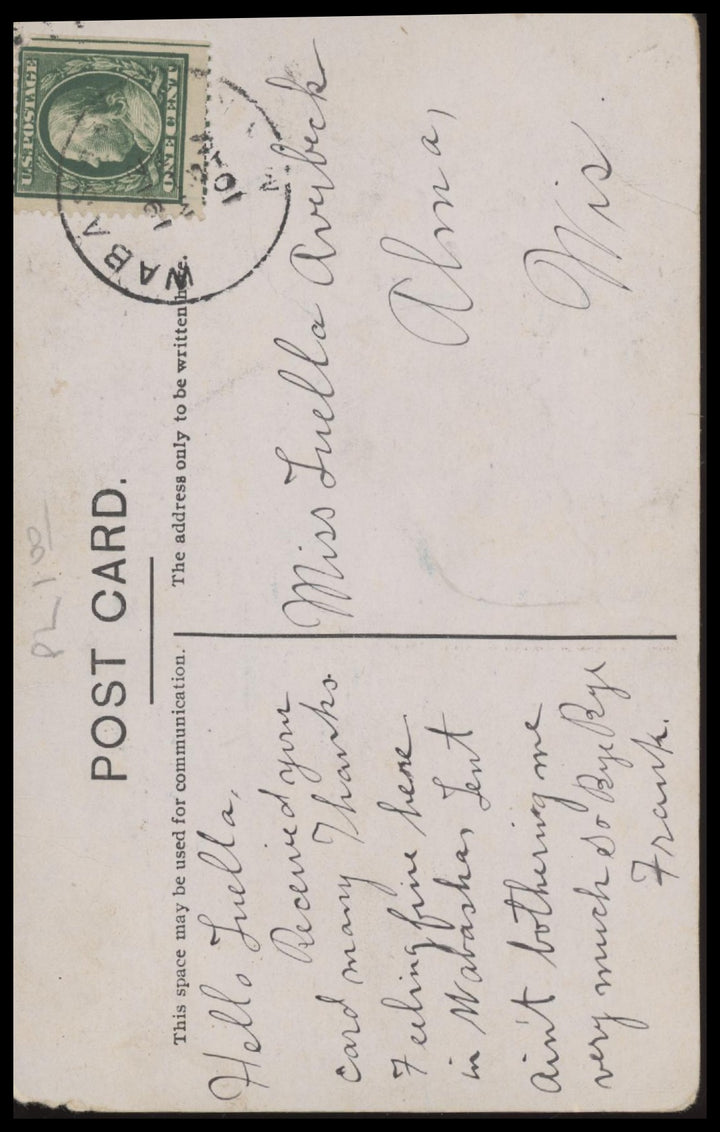 POST CARD.
This space may be used for communication.
The address only to be written here.
U.S. POSTAGE
ONE CENT
WABA
Hello Luella,
Received your
card many Thanks
Feeling fine here
in Wabasha, Lent
ain't bothering me
very much so Bye Bye
Frank.
Miss Luella
Alma,
Wis.